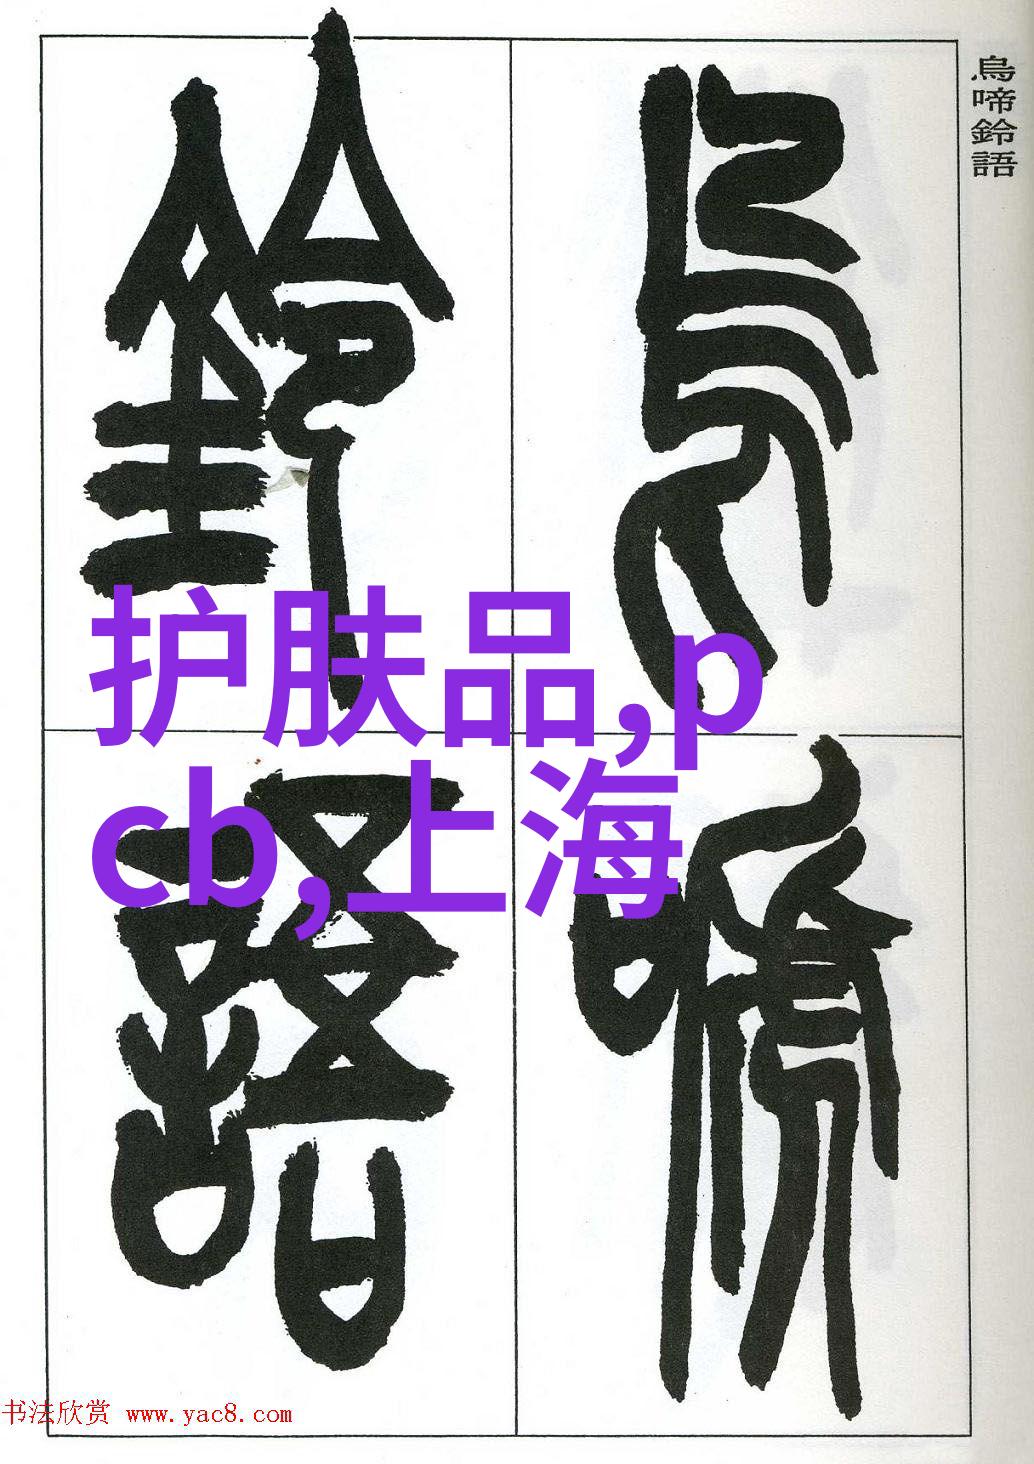 烏啼鈴語
烏啼
鈴語
护肤品,p
cb,上海
书法欣赏 www.yac8.com